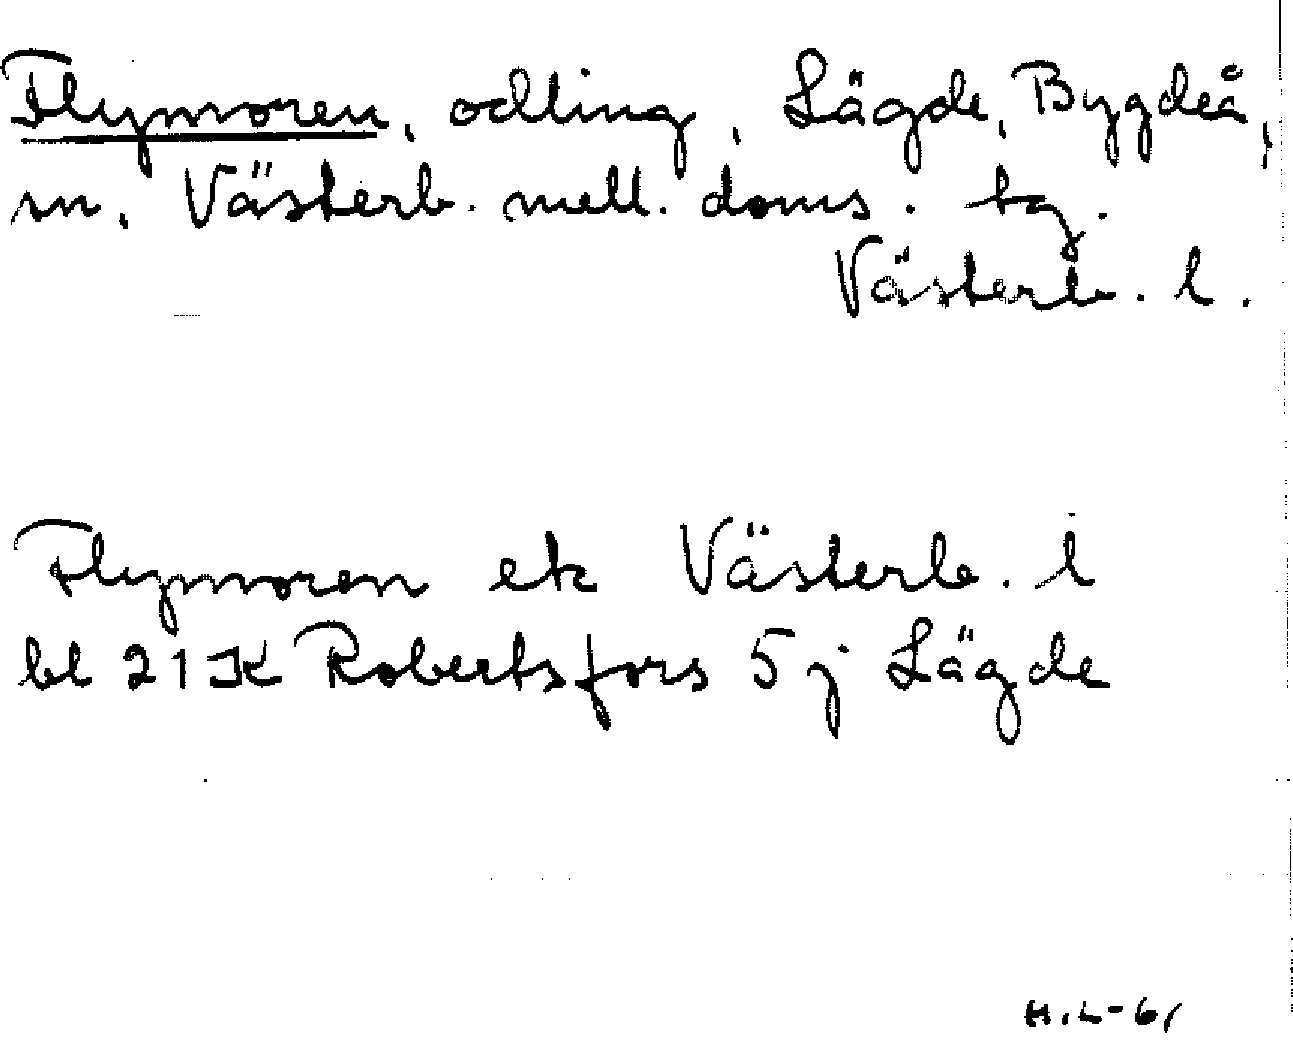 Flymoren, odling, Lägde, Bygdeå,
sn, Västerb. mell. doms. tg.
Västerb. l.
Flymoren ek Västerb. l
bl 21K Robertsfors 5 j Lägde
H.L-61